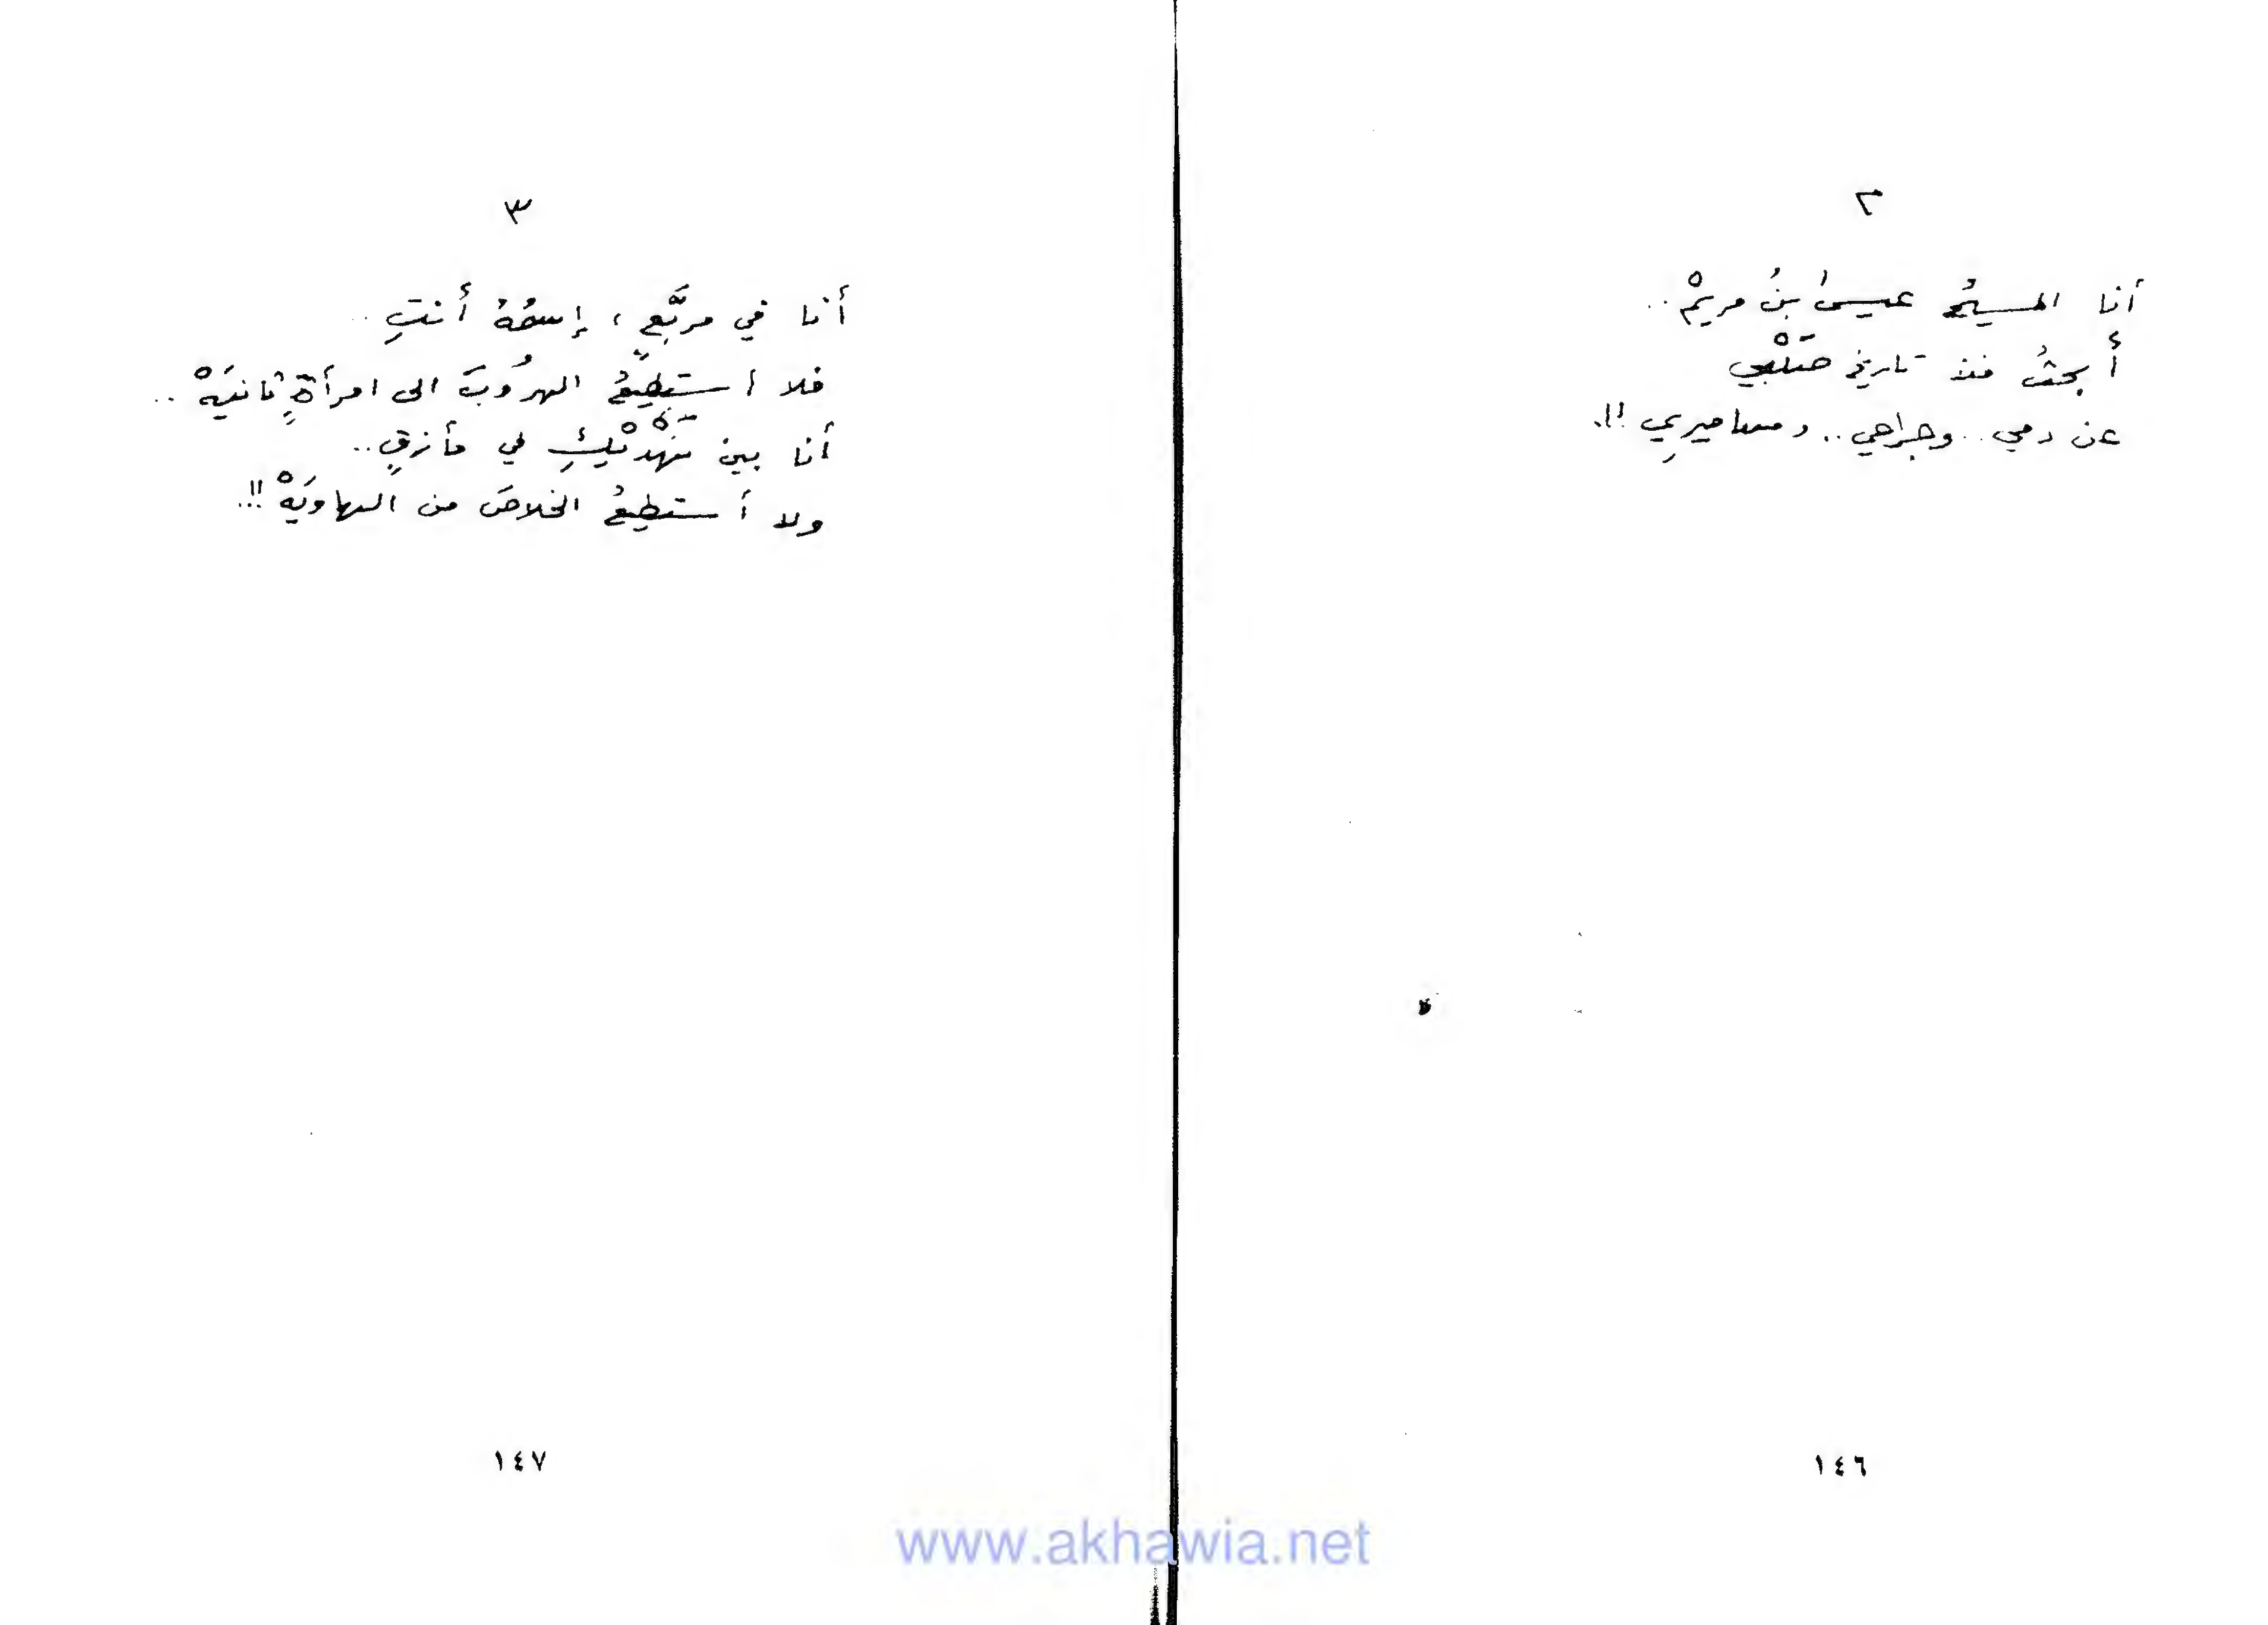 ٢
أنا المسيحُ عيسىٰ بنُ مريمْ..
أبحثُ منذ تاريخ صَلْبي
عن دمي.. وجراحي.. ومساميرِي!!.
١٤٦
٣
أنا في مربَّعٍ، إسمُهُ أنتِ..
فلا أستطيعُ الهرُوبَ الى امرأةٍ ثانيَهْ..
أنا بين نَهْدَيْكِ في مأزقٍ..
ولا أستطيعُ الخلاصَ من الهاويَهْ!!.
١٤٧
www.akhawia.net